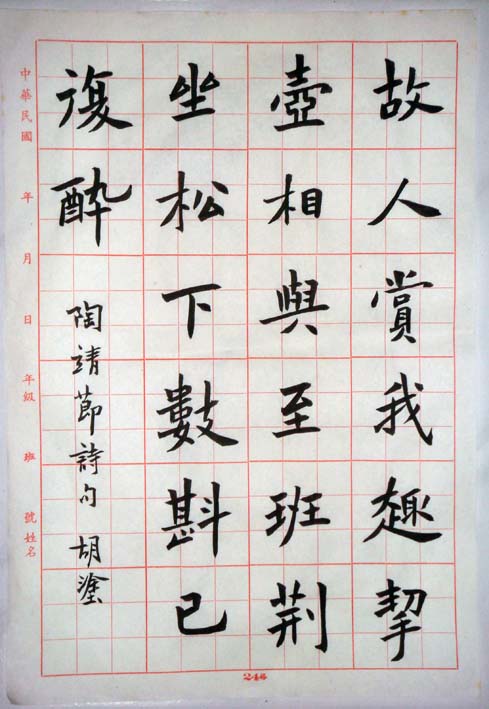 故人賞我趣挈
壺相與至班荊
坐松下數斟已
復酔
陶靖節詩句 胡塗
中華民國 年 月 日 年級 班 號姓名